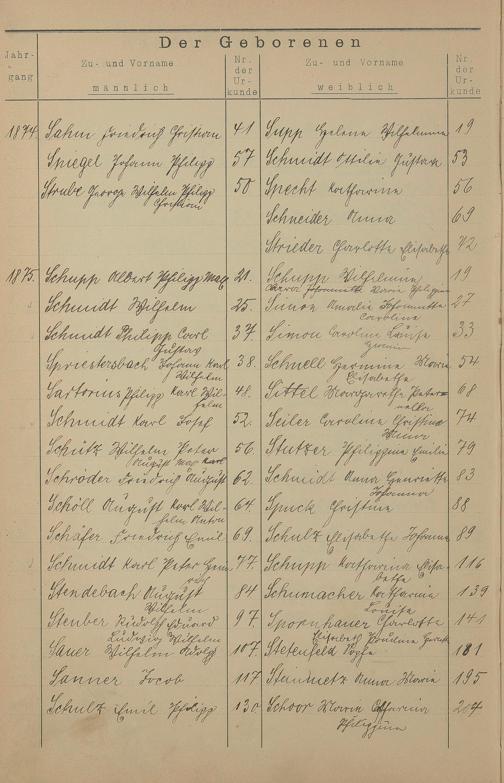 Der Geborenen
Jahr-
gang
Zu- und Vorname
männlich
Nr.
der
Ur-
kunde
Zu- und Vorname
weiblich
Nr.
der
Ur-
kunde
1874. Sahm Friedrich Christian 41 Supp Helene Wilhelmine 19
Spiegel Johann Philipp 57 Schmidt Ottilie Gustava 53
Strube George Wilhelm Philipp 50 Specht Katharine 56
Christian
Schneider Anna 69
Strieder Charlotte Elisabethe 72
1875. Schupp Albert Philipp Max 21. Schupp Wilhelmine 19
Marie
Schmidt Wilhelm 25. Simon Amalie Johannette 27
Caroline
Schmidt Philipp Carl 37. Simon Caroline Luise 33
Gustav
Spriestersbach Johann Karl 38. Schnell Hermine Marie 54
Wilhelm Elisabethe
Sartorius Philipp Karl Wil- 48. Sittel Margarethe Peter- 68
helm nella
Schmidt Karl Josef 52. Seiler Caroline Christine 74
Anna
Schütz Wilhelm Peter 56. Stutzer Philippine Emilie 79
August Max Karl
Schröder Friedrich August 62. Schmidt Anna Henriette 83
Johanna
Schöll August Karl Wil- 64. Spuck Christine 88
helm Anton
Schäfer Friedrich Emil 69. Schulz Elisabethe Johanna 89
Schmidt Karl Peter 77. Schupp Katharina Elisa- 116
bethe
Stendebach August 84 Schumacher Katharina 139
Wilhelm Louise
Steuber Rudolf Eduard 97. Spornhauer Charlotte 141
Ludwig Wilhelm Elisabeth
Sauer Wilhelm Adolf 107. Stetenfeld Sophie 181
Sanner Jacob 117 Steinmetz Anna Marie 195
Schulz Emil Philipp 130 Schoor Marie Catharina 204
Philippina